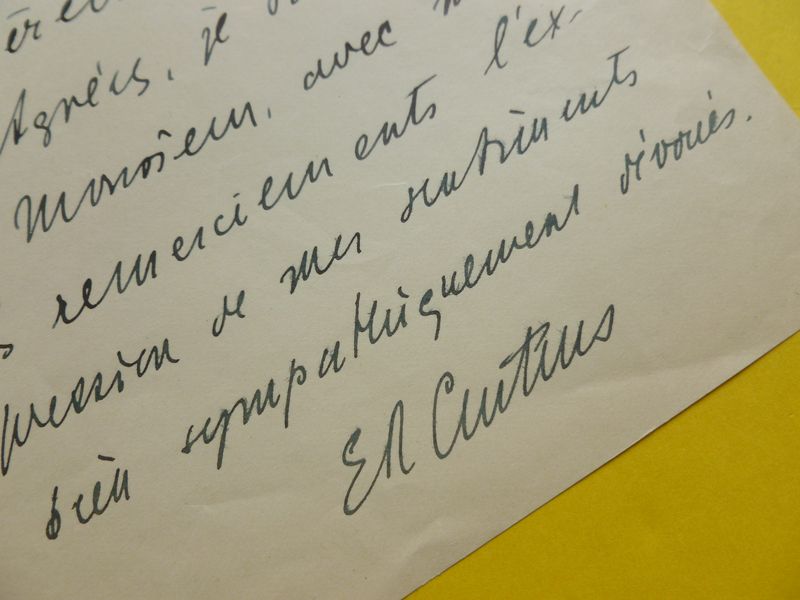 Agréez, je
Monsieur, avec
remerciements l'ex-
pression de mes sentiments
bien sympathiquement dévoués.
ER Curtius